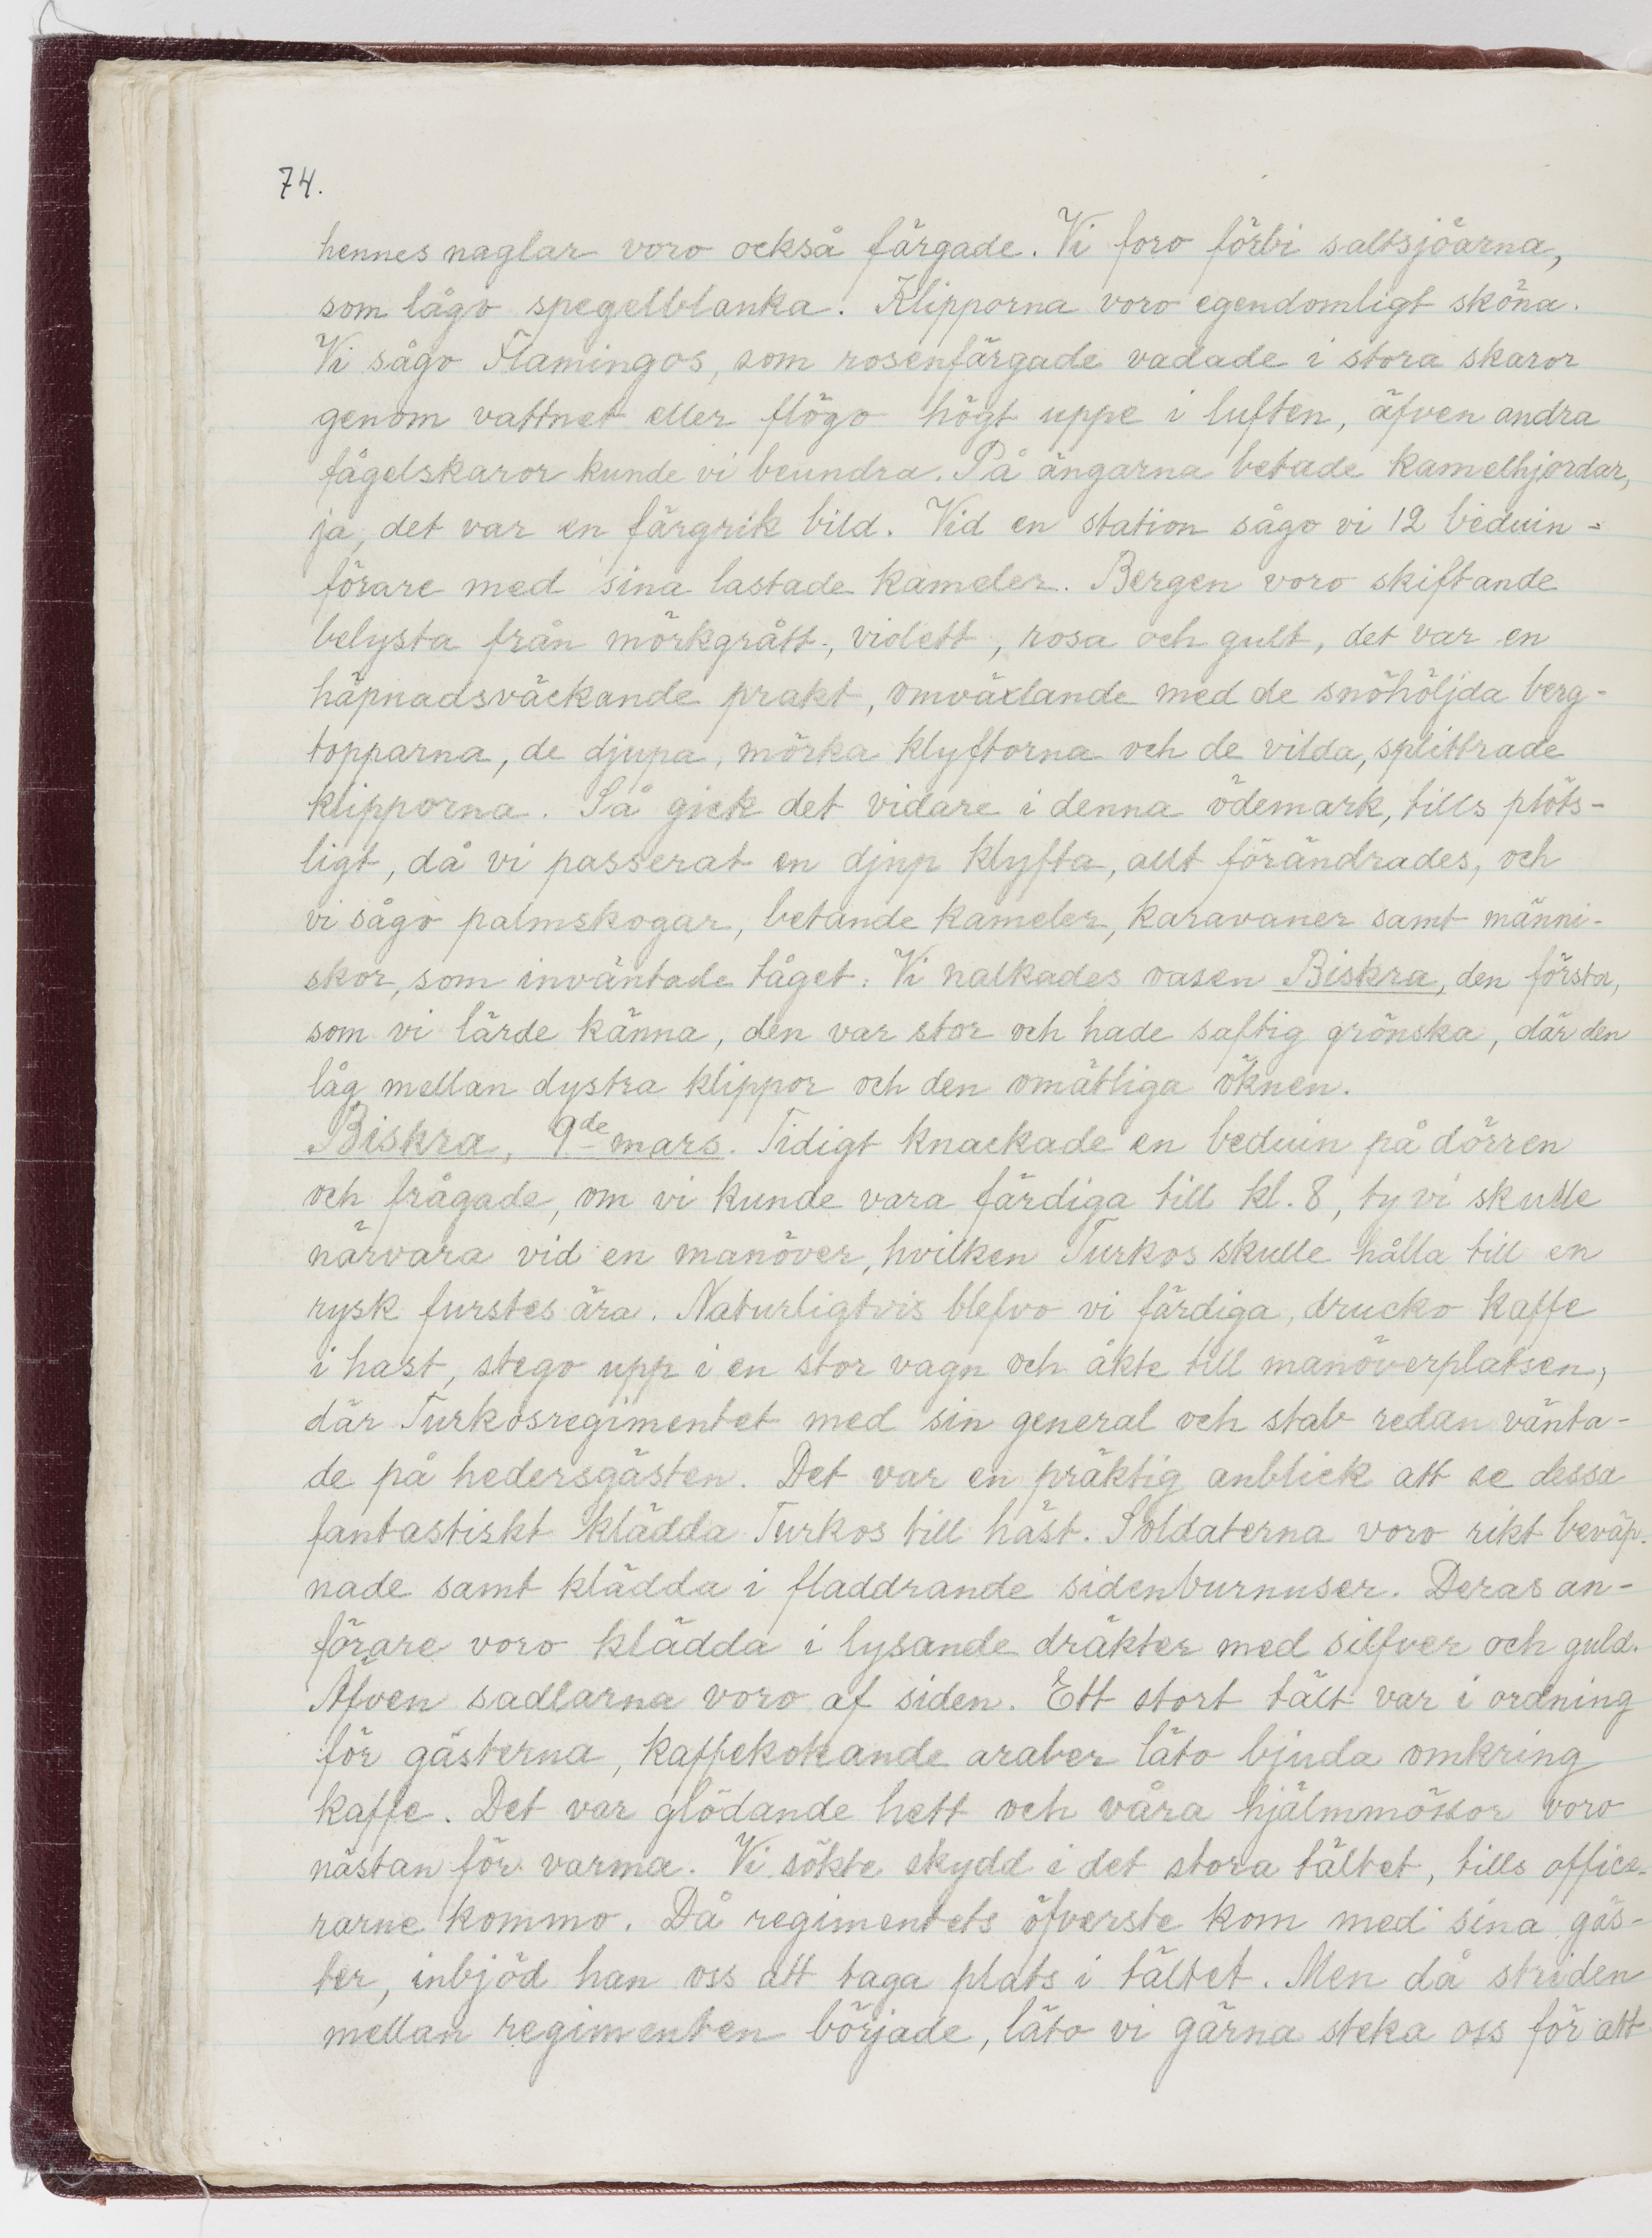 74.
hennes naglar voro också färgade. Vi foro förbi saltsjöarna,
som lågo spegelblanka. Klipporna voro egendomligt sköna.
Vi sågo Flamingos, som rosenfärgade vadade i stora skaror
genom vattnet eller flögo högt uppe i luften, äfven andra
fågelskaror kunde vi beundra. På ängarna betade kamelhjordar,
ja, det var en färgrik bild. Vid en station sågo vi 12 beduin-
förare med sina lastade kameler. Bergen voro skiftande
belysta från mörkgrått, violett, rosa och gult, det var en
häpnadsväckande prakt, omväxlande med de snöhöljda berg-
topparna, de djupa, mörka klyftorna och de vilda, splittrade
klipporna. Så gick det vidare i denna ödemark, tills plöts-
ligt, då vi passerat en djup klyfta, allt förändrades, och
vi sågo palmskogar, betande kameler, karavaner samt männi-
skor, som inväntade tåget. Vi nalkades oasen Biskra, den första,
som vi lärde känna, den var stor och hade saftig grönska, där den
låg mellan dystra klippor och den omätliga öknen.
Biskra, 9de mars. Tidigt knackade en beduin på dörren
och frågade, om vi kunde vara färdiga till kl. 8, ty vi skulle
närvara vid en manöver, hvilken Turkos skulle hålla till en
rysk furstes ära. Naturligtvis blefvo vi färdiga, drucko kaffe
i hast, stego upp i en stor vagn och åkte till manöverplatsen,
där Turkosregimentet med sin general och stab redan vänta-
de på hedersgästen. Det var en präktig anblick att se dessa
fantastiskt klädda Turkos till häst. Soldaterna voro rikt beväp-
nade samt klädda i fladdrande sidenburnuser. Deras an-
förare voro klädda i lysande dräkter med silfver och guld.
Äfven sadlarna voro af siden. Ett stort tält var i ordning
för gästerna, kaffekokande araber läto bjuda omkring
kaffe. Det var glödande hett och våra hjälmmössor voro
nästan för varma. Vi sökte skydd i det stora tältet, tills office-
rarne kommo. Då regimentets öfverste kom med sina gäs-
ter, inbjöd han oss att taga plats i tältet. Men då striden
mellan regimenten började, läto vi gärna steka oss för att